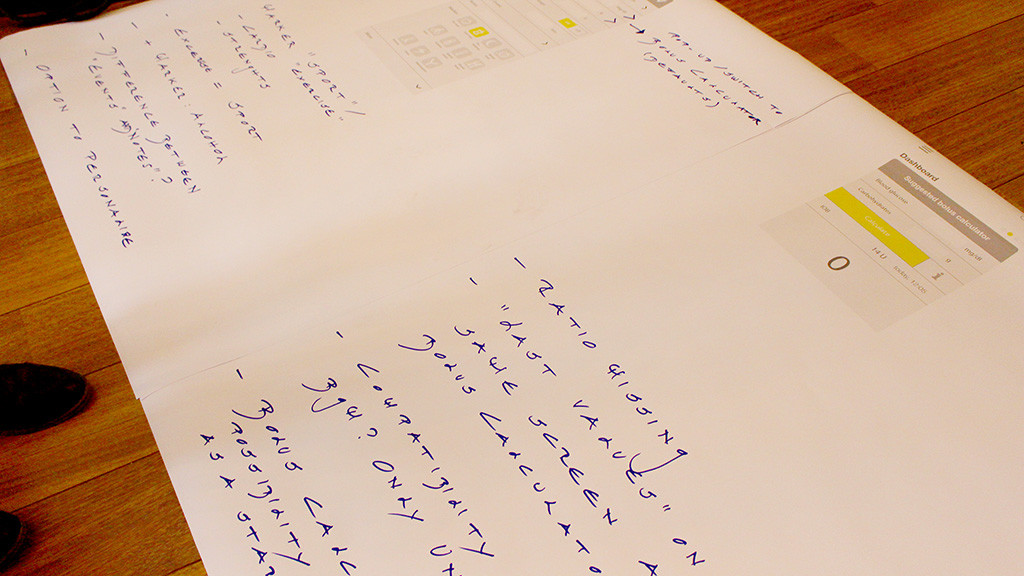 MARKER "SPORT"/
"EXERCISE"
- CARDIO
- STRENGHTS
EXCERCISE = SPORT
- + MARKER: ALCOHOL
- DIFFERENCE BETWEEN
"EVENTS" AND "NOTES"?
- OPTION TO PERSONALISE
POP-UP / SWITCH TO
→ BOLUS CALCULATOR
(DEFAULTS)
Dashboard
Suggested bolus calculator
Blood glucose
mg/dl
Carbohydrates
0
14 U
0
- RATIO MISSING
- "LAST VALUES" ON
SAME SCREEN A
BOLUS CALCULATO
- COMPATIBILITY
BGM? ONLY U
- BOLUS CALC
POSSIBILITY
AS A STA